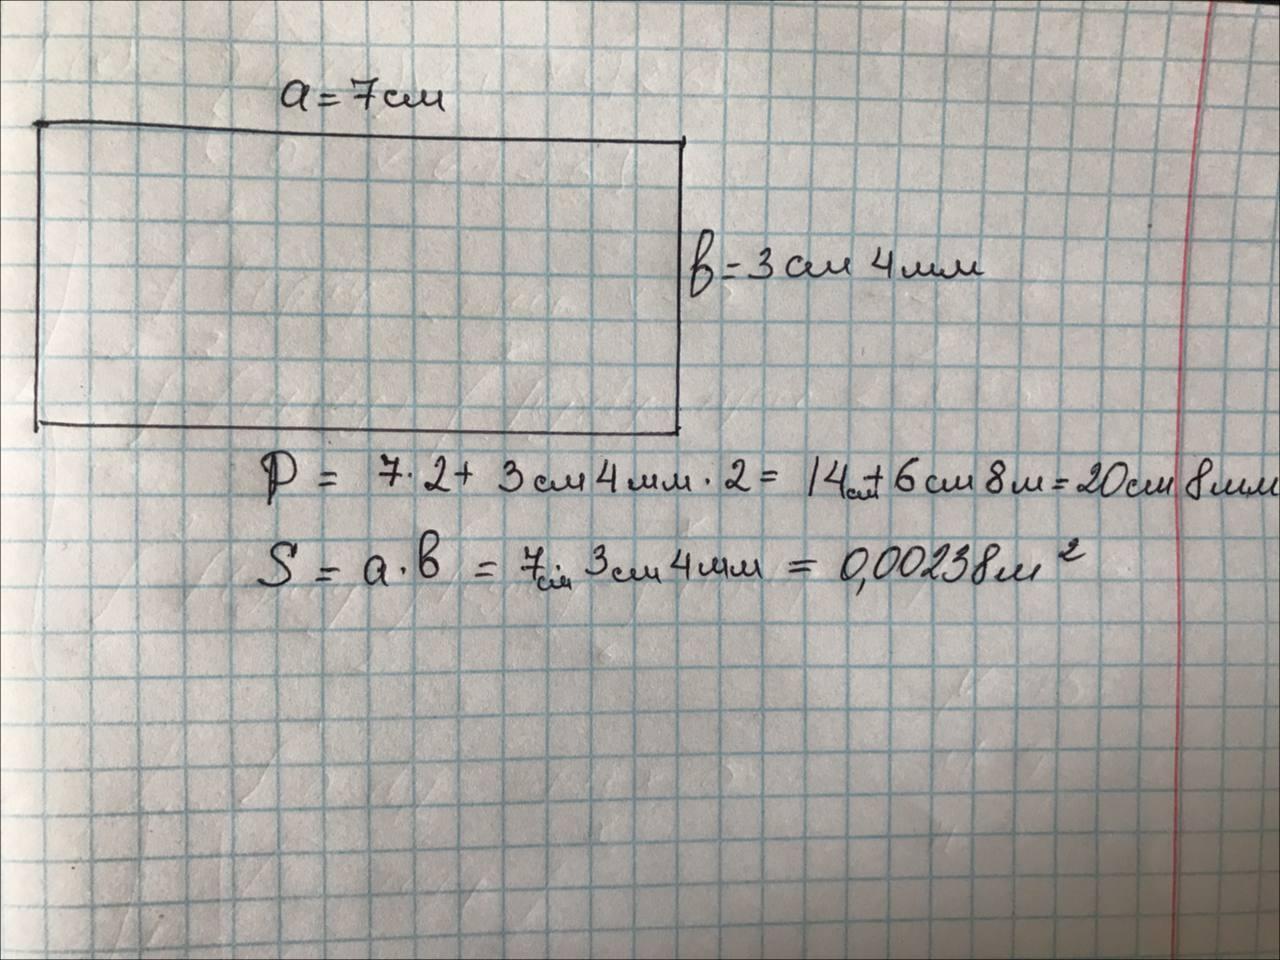 a = 7см
в = 3см 4мм
P = 7·2 + 3см4мм·2 = 14см + 6см8м = 20см 8мм
S = a·в = 7см·3см4мм = 0,00238м²